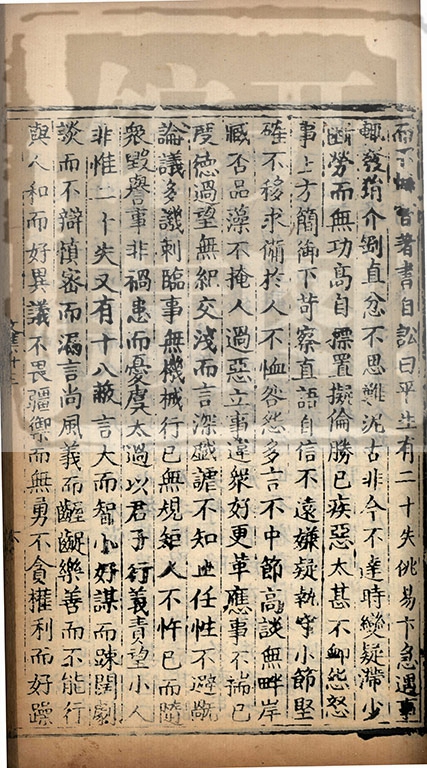 而不悔昔著書自訟曰平生有二十失佻易卞急遇事
輒發狷介剛直忿不思難泥古非今不達時變疑滯少
斷勞而無功高自標置擬倫勝己疾惡太甚不卹怨怒
事上方簡御下苛察直語自信不遠嫌疑執守小節堅
確不移求備於人不恤咎怨多言不中節高談無畔岸
臧否品藻不掩人過惡立事違衆好更革應事不揣己
度德過望無紀交淺而言深戲謔不知止任性不避嫌
論議多譏刺臨事無機械行己無規矩人不忤己而隨
衆毀譽事非禍患而憂虞太過以君子行義責望小人
非惟二十失又有十八蔽言大而智小好謀而踈闊劇
談而不辯慎審而漏言尚風義而齷齪樂善而不能行
與人和而好異議不畏彊禦而無勇不貪權利而好躁